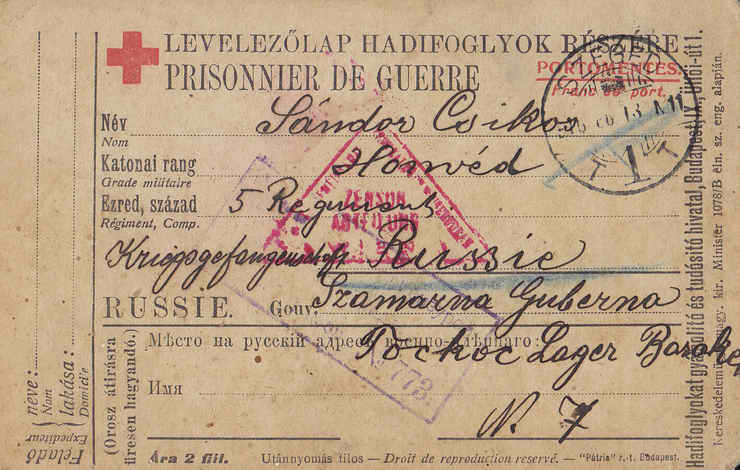 LEVELEZŐLAP HADIFOGLYOK RÉSZÉRE
PRISONNIER DE GUERRE
PORTÓMENTES.
Franc de port.
Név Sándor Csikos
Nom
Katonai rang Honvéd
Grade militaire
Ezred, század 5 Regiment
Régiment, Comp.
ZENSUR
Kriegsgefangenschaft Russie
RUSSIE. Gouv. Szamarna Guberna
Мѣсто на русскій адресъ военно-плѣннаго:
Tockoe Lager Barake
Имя
N. 7
773.
1
(Orosz átirásra
üresen hagyandó.)
Feladó
Expéditeur
neve:
Nom
lakása:
Domicile
Ára 2 fill. Utánnyomás tilos — Droit de reproduction reservé. — "Pátria" r.-t. Budapest.
Hadifoglyokat gyámolító és tudósító hivatal, Budapest IX., Üllői-út 1.
Kereskedelemügyi magy. kir. Minister 1078/B eln. sz. eng. alapján.